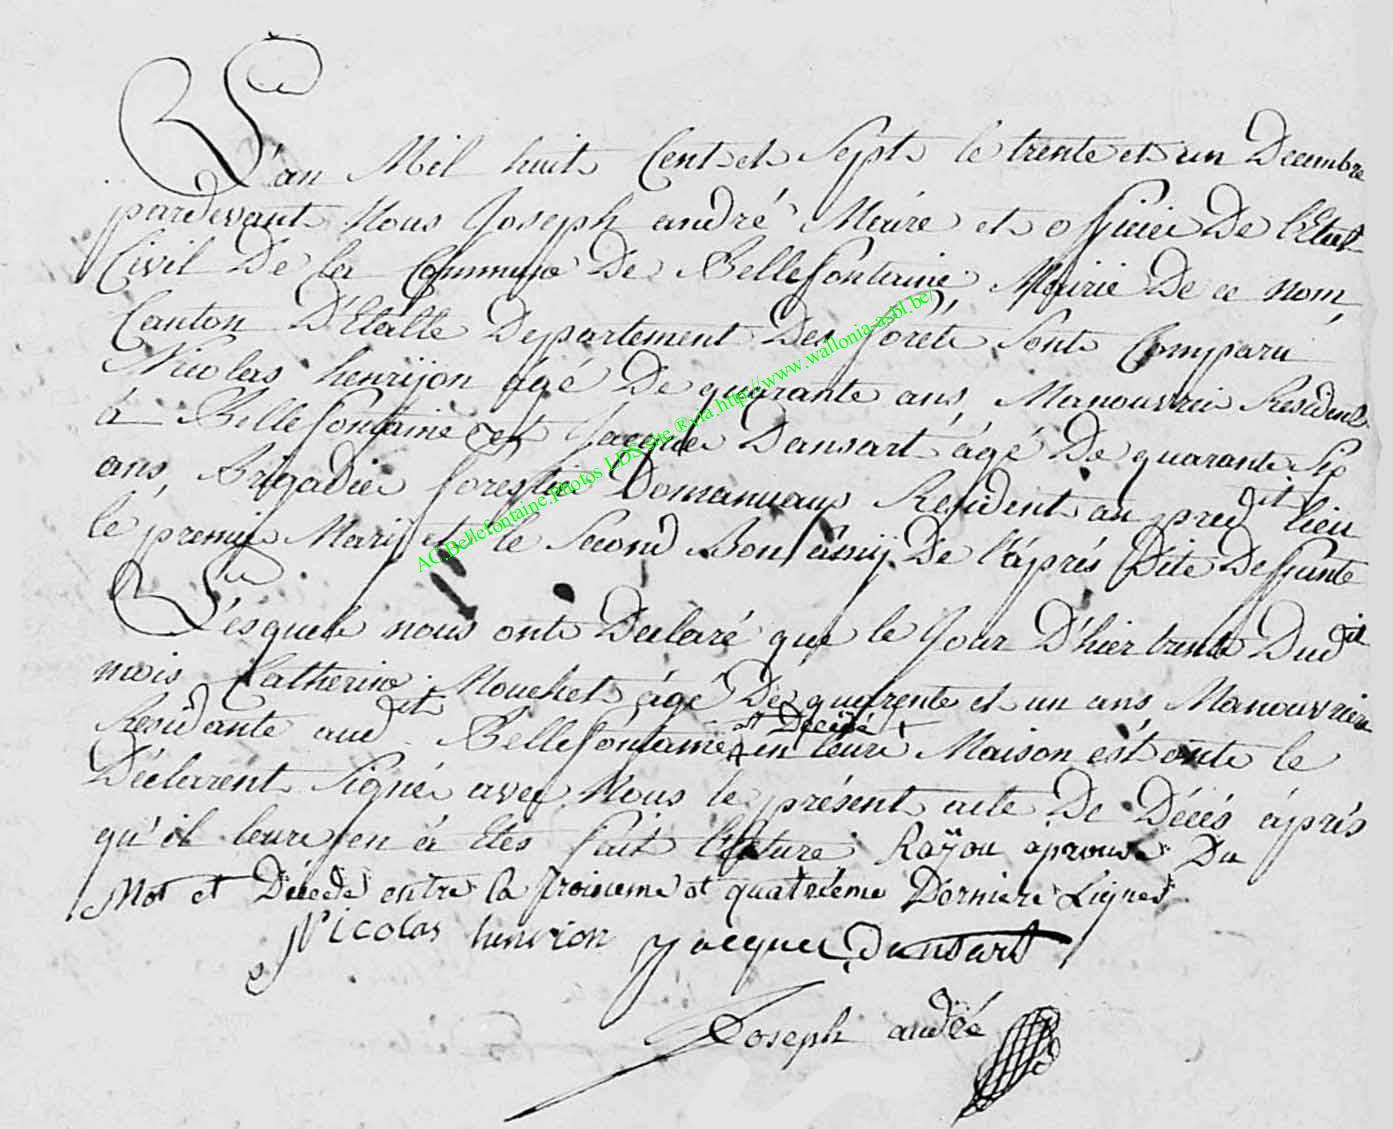 L'an Mil huit Cent et Sept le trente et un Decembre
pardevant Nous Joseph andré Maire et officier De l'Etat
Civil De la Commune De Bellefontaine Mairie De ce nom,
Canton D'Etalle Departement Des forêts Sont Comparu
Nicolas henrijon agé De quarante ans Manouvrie Resident
à Bellefontaine et Jacque Dansart âgé De quarante Six
ans, Brigadier forestie Domanuaux Resident au predit lieu
le premie Mari et le Second Bon ámij De l'áprés Dite Deffunte
Lésquels nous onts Declaré que le Jour D'hier trente Dudit
mois Catherine Mouchet ágé De quarente et un ans Manouvriere
Residante audit Bellefontaine et Decédé en leure Maison est onts le
Déclarent Signé avec Nous le présent acte De Décés áprés
qu'il leure en à Etes fait lecture Raÿou áprouve Du
Mot et Décede entre la troisieme et quatriéme Derniere Lignes
Nicolas henrion Jacque Dansart
Joseph andré
AC Bellefontaine.Photos LDS.sue ® via http://www.wallonia-asbl.be/